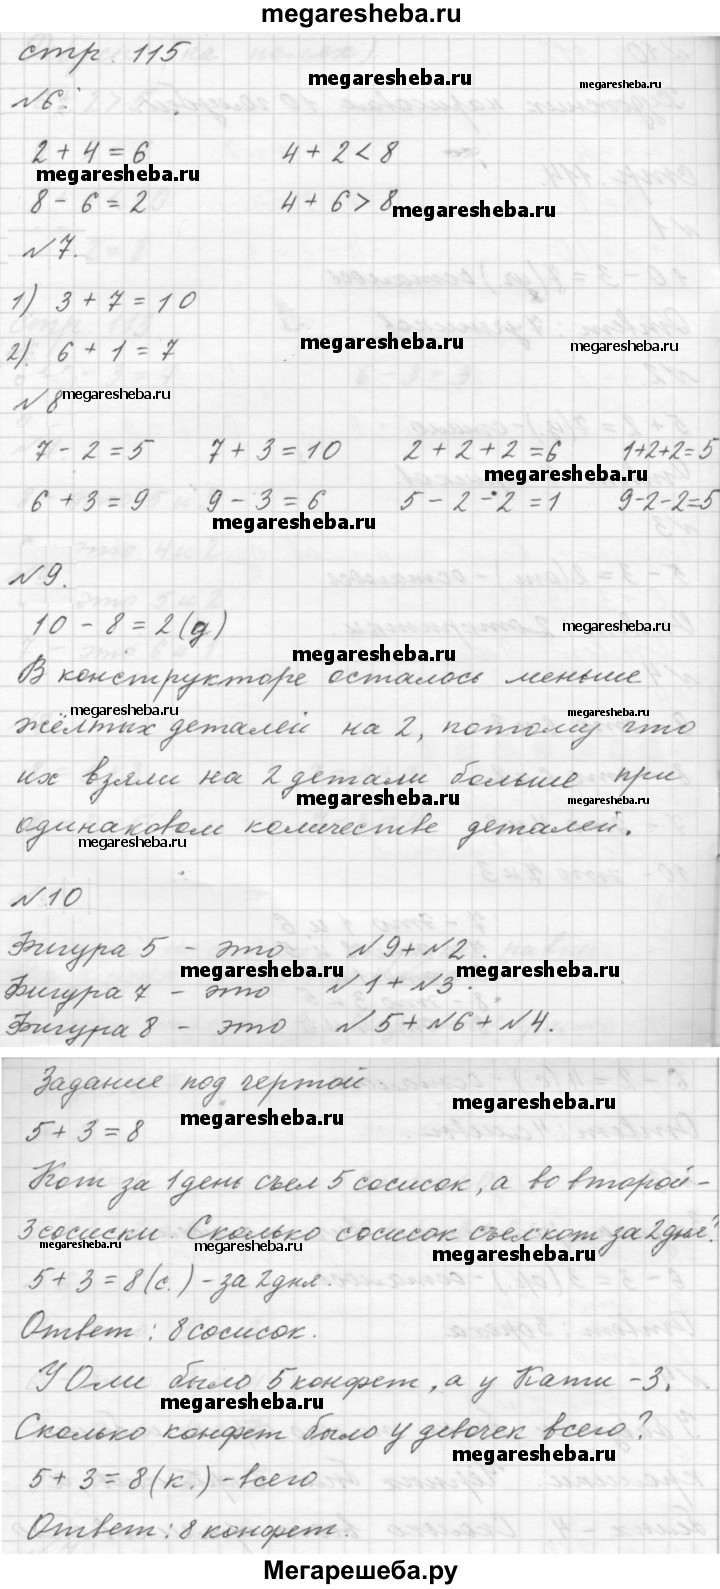 megaresheba.ru
стр. 115
megaresheba.ru megaresheba.ru
№6.
2 + 4 = 6 4 + 2 < 8
megaresheba.ru
8 - 6 = 2 4 + 6 > 8 megaresheba.ru
№7.
1) 3 + 7 = 10
megaresheba.ru megaresheba.ru
2). 6 + 1 = 7
№8 megaresheba.ru
7 - 2 = 5 7 + 3 = 10 2 + 2 + 2 = 6 1+2+2=5
megaresheba.ru
6 + 3 = 9 9 - 3 = 6 5 - 2 - 2 = 1 9-2-2=5
megaresheba.ru
№9.
10 - 8 = 2 (д) megaresheba.ru
megaresheba.ru
В конструкторе осталось меньше
megaresheba.ru megaresheba.ru
жёлтых деталей на 2, потому что
их взяли на 2 детали больше при
megaresheba.ru megaresheba.ru
одинаковом количестве деталей.
megaresheba.ru
№10
Фигура 5 - это №9+№2.
megaresheba.ru megaresheba.ru
Фигура 7 - это №1+№3.
Фигура 8 - это №5+№6+№4.
Задание под чертой
megaresheba.ru
megaresheba.ru
5 + 3 = 8
Кот за 1 день съел 5 сосисок, а во второй -
3 сосиски. Сколько сосисок съел кот за 2 дня?
megaresheba.ru megaresheba.ru megaresheba.ru
5 + 3 = 8 (с.) - за 2 дня.
Ответ: 8 сосисок.
У Оли было 5 конфет, а у Кати - 3.
megaresheba.ru
Сколько конфет было у девочек всего?
megaresheba.ru
5 + 3 = 8 (к.) - всего
Ответ: 8 конфет.
megaresheba.ru
Мегарешеба.ру